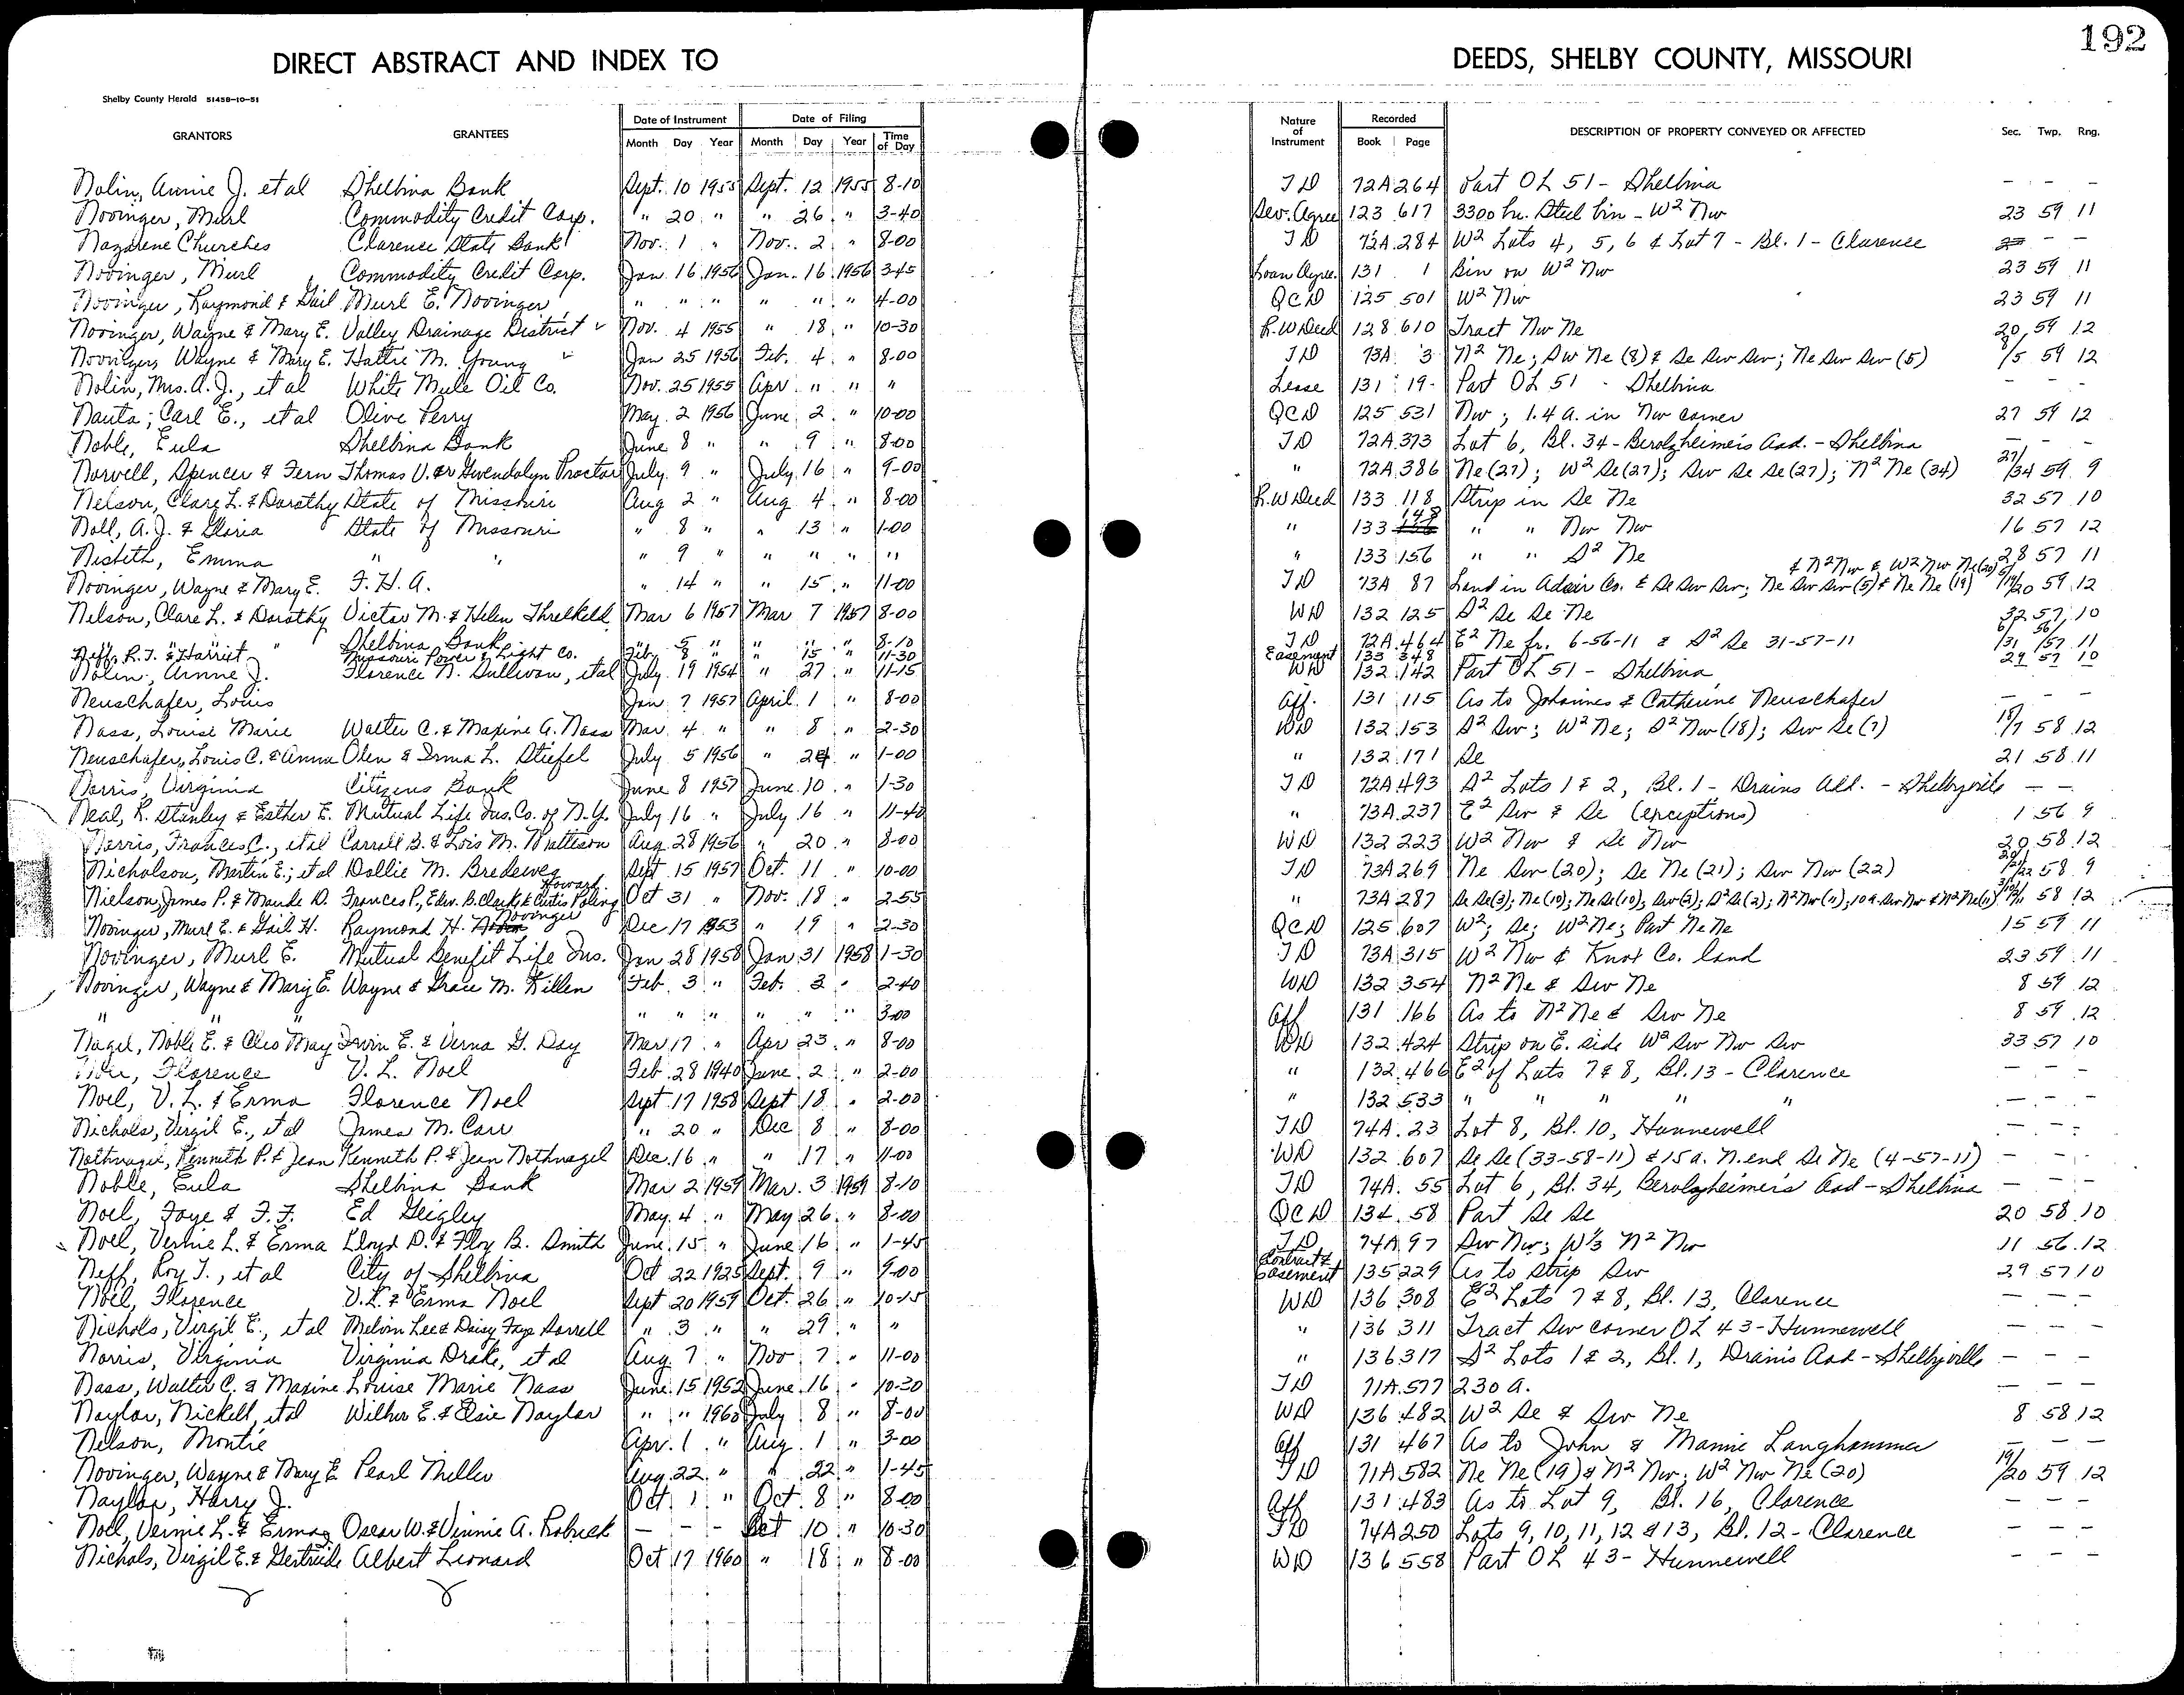 192
DIRECT ABSTRACT AND INDEX TO DEEDS, SHELBY COUNTY, MISSOURI
Shelby County Herald 51458-10-51
GRANTORS GRANTEES Date of Instrument Date of Filing Nature of Instrument Recorded DESCRIPTION OF PROPERTY CONVEYED OR AFFECTED Sec. Twp. Rng.
Month Day Year Month Day Year Time of Day Book Page
Nolin, Annie J. et al Shelbina Bank Sept. 10 1955 Sept. 12 1955 8-10 TD 72A 264 Part OL 51 - Shelbina - - -
Novinger, Murl Commodity Credit Corp. " 20 " " 26 " 3-40 Sev. Agree 123 617 3300 bu. Steel bin - W2 Nw 23 59 11
Nazarene Churches Clarence State Bank Nov. 1 " Nov. 2 " 8-00 TD 72A 284 W2 Lots 4, 5, 6 & Lot 7 - Bl. 1 - Clarence - -
Novinger, Murl Commodity Credit Corp. Jan. 16 1956 Jan. 16 1956 3-45 Loan Agree. 131 1 Bin on W2 Nw 23 59 11
Novinger, Raymond & Gail Murl E. Novinger " " " " " " 4-00 QCD 125 501 W2 Nw 23 59 11
Novinger, Wayne & Mary E. Valley Drainage District Nov. 4 1955 " 18 " 10-30 R.W Deed 128 610 Tract Nw Ne 20 59 12
Novinger, Wayne & Mary E. Hattie M. Young Jan 25 1956 Feb. 4 " 8-00 TD 73A 3 N2 Ne; Sw Ne (8) & Se Sw Sw; Ne Sw Sw (5) 8/5 59 12
Nolin, Mrs. A. J., et al White Mule Oil Co. Nov. 25 1955 Apr " " " Lease 131 19 Part OL 51 - Shelbina - - -
Nauta, Carl E., et al Olive Perry May 2 1956 June 2 " 10-00 QCD 125 531 Nw; 1.4 a. in Nw corner 27 59 12
Noble, Eula Shelbina Bank June 8 " " 9 " 8-00 TD 72A 373 Lot 6, Bl. 34 - Berolzheimer's Add. - Shelbina - - -
Norvell, Spencer & Fern Thomas V. & Gwendolyn Proctor July 9 " July 16 " 9-00 " 72A 386 Ne (27); W2 Se (27); Sw Se Se (27); N2 Ne (34) 27/34 59 9
Nelson, Clare L. & Dorothy State of Missouri Aug 2 " Aug 4 " 8-00 R.W Deed 133 118 Strip in Se Ne 32 57 10
Noll, A. J. & Gloria State of Missouri " 8 " " 13 " 1-00 " 133 148 " " Nw Nw 16 57 12
Nisbeth, Emma " " " 9 " " " " " " 133 156 " " S2 Ne 28 57 11
Novinger, Wayne & Mary E. F. H. A. " 14 " " 15 " 11-00 TD 73A 87 Land in Adair Co. & Se Sw Sw; Ne Sw Sw (5) & Ne Ne (19) & N2 Nw & W2 Nw Ne (20) 5/19/20 59 12
Nelson, Clare L. & Dorothy Victor M. & Helen Threlkeld Mar 6 1957 Mar 7 1957 8-00 WD 132 125 S2 Se Se Ne 32 57 10
" " " Shelbina Bank " 5 " " " " 8-10 TD 72A 464 E2 Ne fr. 6-56-11 & S2 Se 31-57-11 6/31 56/57 11
Neff, R. T. & Harriet Missouri Power & Light Co. Feb. 8 " " 15 " 11-30 Easement 133 348 29 57 10
Nolin, Annie J. Florence N. Sullivan, et al July 19 1954 " 27 " 11-15 WD 132 142 Part OL 51 - Shelbina - - -
Neuschafer, Louis Jan 7 1957 April 1 " 8-00 Aff. 131 115 As to Johannes & Catherine Neuschafer - - -
Nass, Louise Marie Walter C. & Maxine A. Nass Mar. 4 " " 8 " 2-30 WD 132 153 S2 Sw; W2 Ne; S2 Nw (18); Sw Se (7) 18/7 58 12
Neuschafer, Louis C. & Anna Olen & Irma L. Stiefel July 5 1956 " 24 " 1-00 " 132 171 Se 21 58 11
Norris, Virginia Citizens Bank June 8 1957 June 10 " 1-30 TD 72A 493 S2 Lots 1 & 2, Bl. 1 - Drains Add. - Shelbyville - -
Neal, R. Stanley & Esther E. Mutual Life Ins. Co. of N.Y. July 16 " July 16 " 11-40 " 73A 237 E2 Sw & Se (exceptions) 1 56 9
Norris, Frances C., et al Carroll B. & Lois M. Matteson Aug. 28 1956 " 20 " 8-00 WD 132 223 W2 Nw & Se Nw 20 58 12
Nicholson, Martin E., et al Dollie M. Bredeweg Sept 15 1957 Oct. 11 " 10-00 TD 73A 269 Ne Sw (20); Se Ne (21); Sw Nw (22) 20/21/22 58 9
Nielson, James P. & Maude D. Frances P., Edw. B. Clark & Curtis Howard Poling Oct 31 " Nov. 18 " 2-55 " 73A 287 Se Se (3); Ne (10); Ne Se (10); Sw (2); S2 Se (2); N2 Nw (11); 10 a. Sw Nw & N2 Ne (11) 58 12
Novinger, Murl E. & Gail H. Raymond H. Novinger Dec 17 1953 " 19 " 2-30 QCD 125 607 W2; Se; W2 Ne; Part Ne Ne 15 59 11
Novinger, Murl E. Mutual Benefit Life Ins. Jan 28 1958 Jan 31 1958 1-30 TD 73A 315 W2 Nw & Knox Co. land 23 59 11
Novinger, Wayne & Mary E. Wayne & Grace M. Killen Feb. 3 " Feb. 3 " 2-40 WD 132 354 N2 Ne & Sw Ne 8 59 12
" " " " " " " " " 3-00 Aff 131 166 As to N2 Ne & Sw Ne 8 59 12
Nagel, Noble E. & Cleo May Irvin E. & Verna G. Day Mar 17 " Apr 23 " 8-00 WD 132 424 Strip on E. side W2 Sw Nw Sw 33 57 10
Florence V. L. Noel Feb. 28 1940 June 2 " 2-00 " 132 466 E2 of Lots 7 & 8, Bl. 13 - Clarence - - -
Noel, V. L. & Erma Florence Noel Sept 17 1958 Sept 18 " 2-00 " 132 533 " " " " " - - -
Nichols, Virgil E., et al James M. Carr " 20 " Dec 8 " 8-00 TD 74A 23 Lot 8, Bl. 10, Hunnewell - - -
Nothnagel, Kenneth P. & Jean Kenneth P. & Jean Nothnagel Dec. 16 " " 17 " 11-00 WD 132 607 Se Se (33-58-11) & 15 a. N. end Se Ne (4-57-11) - - -
Noble, Eula Shelbina Bank Mar 2 1959 Mar. 3 1959 8-10 TD 74A 55 Lot 6, Bl. 34, Berolzheimer's Add - Shelbina - - -
Noel, Faye & F. F. Ed Geigley May 4 " May 26 " 8-00 QCD 134 58 Part Se Se 20 58 10
Noel, Vernie L. & Erma Lloyd D. & Floy B. Smith June 15 " June 16 " 1-45 TD 74A 97 Sw Nw; W1/3 N2 Nw 11 56 12
Neff, Roy T., et al City of Shelbina Oct 22 1925 Sept. 9 " 9-00 Contract & Easement 135 229 As to Strip Sw 29 57 10
Noel, Florence V.L. & Erma Noel Sept 20 1959 Oct. 26 " 10-15 WD 136 308 E2 Lots 7 & 8, Bl. 13, Clarence - - -
Nichols, Virgil E., et al Melvin Lee & Daisy Faye Sorrell " 3 " " 29 " " " 136 311 Tract Sw corner OL 43 - Hunnewell - - -
Norris, Virginia Virginia Drake, et al Aug. 7 " Nov 7 " 11-00 " 136 317 S2 Lots 1 & 2, Bl. 1, Drains Add - Shelbyville - - -
Nass, Walter C. & Maxine Louise Marie Nass June 15 1952 June 16 " 10-30 TD 71A 577 230 a. - - -
Naylor, Nickell, et al Wilber E. & Elsie Naylor " " 1960 July 8 " 8-00 WD 136 482 W2 Se & Sw Ne 8 58 12
Nelson, Montie Apr. 1 " Aug. 1 " 3-00 Aff 131 467 As to John & Mamie Langhammer - - -
Novinger, Wayne & Mary E Pearl Miller Aug. 22 " " 22 " 1-45 TD 71A 582 Ne Ne (19) & N2 Nw; W2 Nw Ne (20) 19/20 59 12
Naylor, Harry J. Oct. 1 " Oct. 8 " 8-00 Aff 131 483 As to Lot 9, Bl. 16, Clarence - - -
Noel, Vernie L. & Erma Oscar W. & Vinnie A. Robuck - - - Oct 10 " 10-30 TD 74A 250 Lots 9, 10, 11, 12 & 13, Bl. 12 - Clarence - - -
Nichols, Virgil E. & Gertrude Albert Leonard Oct 17 1960 " 18 " 8-00 WD 136 558 Part OL 43 - Hunnewell - - -